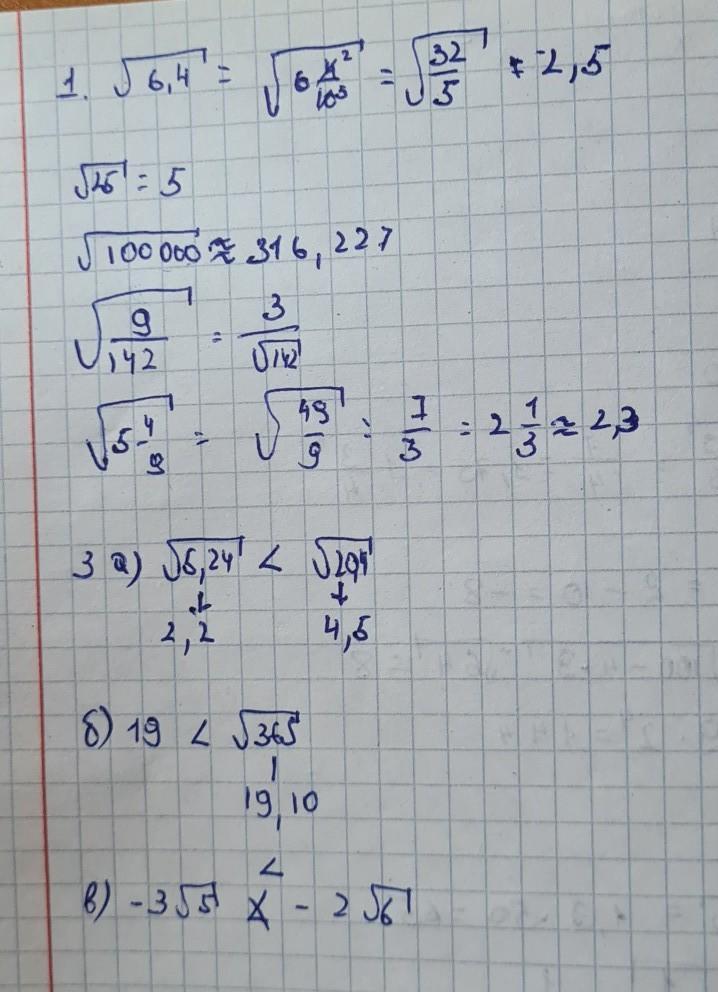 1. √6,4 = √6 4²/10⁵ = √32/5 = 2,5
√25 = 5
√100000 ≈ 316,227
√9/142 = 3/√142
√5 4/9 = √49/9 = 7/3 = 2 1/3 ≈ 2,3
3 а) √5,24 < √20,4
2,2 4,5
б) 19 < √365
19,10
<
в) -3√5 - 2√6